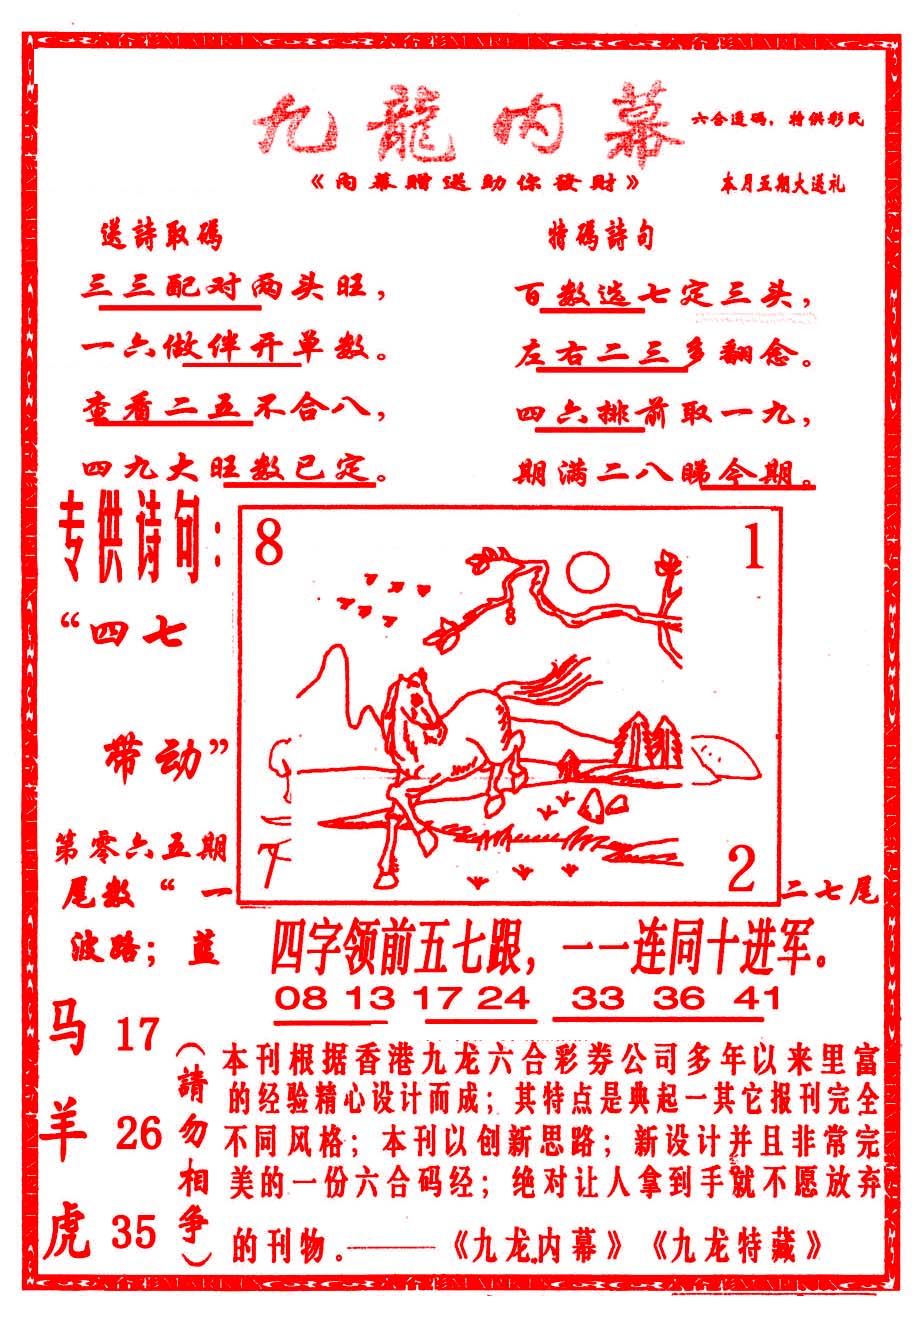 九龍内幕
六合透码，特供彩民
《内幕赠送助你發財》
本月五期大送礼
送詩取碼
三三配对两头旺，
一六做伴开单数。
查看二五不合八，
四九大旺数已定。
特碼詩句
百数选七定三头，
左右二三多翻念。
四六排前取一九，
期满二八睇今期。
专供诗句：
“四七
带动”
第零六五期
尾数“一
波路；蓝
8
1
7
2
二七尾
四字领前五七跟，一一连同十进军。
08 13 17 24 33 36 41
马 17
羊 26
虎 35
（請勿相争）
本刊根据香港九龙六合彩券公司多年以来里富
的经验精心设计而成；其特点是典起一其它报刊完全
不同风格；本刊以创新思路；新设计并且非常完
美的一份六合码经；绝对让人拿到手就不愿放弃
的刊物。——《九龙内幕》《九龙特藏》